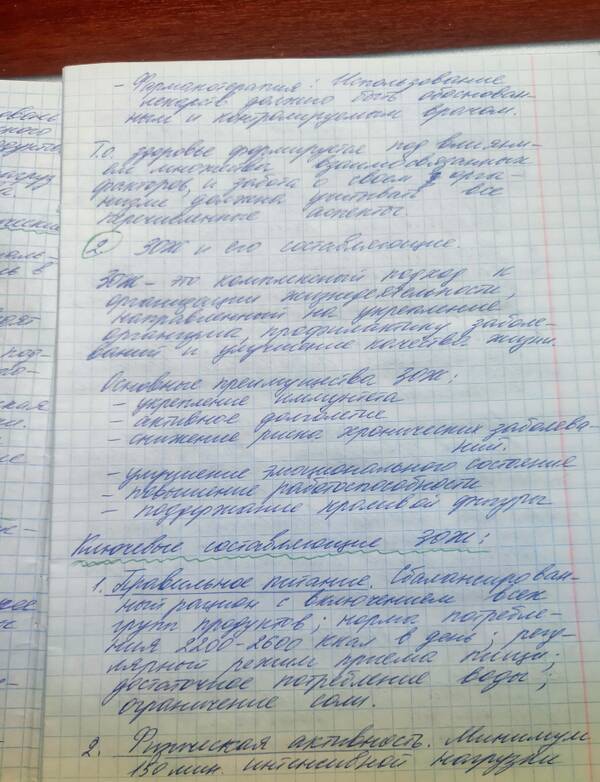 - Фармакотерапия: Использование
лекарств должно быть обоснован-
ным и контролируемым врачом.
Т.о. здоровье формируется под влияни-
ем множества взаимосвязанных
факторов, и забота о своем орга-
низме должна учитывать все
перечисленные аспекты.
2 ЗОЖ и его составляющие.
ЗОЖ - это комплексный подход к
организации жизнедеятельности,
направленный на укрепление
организма, профилактику заболе-
ваний и улучшение качества жизни.
Основные преимущества ЗОЖ:
- укрепление иммунитета
- активное долголетие
- снижение риска хронических заболева-
ний.
- улучшение эмоционального состояние
- повышение работоспособности
- поддержание красивой фигуры
Ключевые составляющие ЗОЖ:
1. Правильное питание. Сбалансирован-
ный рацион с включением всех
групп продуктов; норма потребле-
ния 2200-2600 ккал в день; регу-
лярный режим приема пищи;
достаточное потребление воды;
ограничение соли.
2. Физическая активность. Минимум
150 мин. интенсивной нагрузки